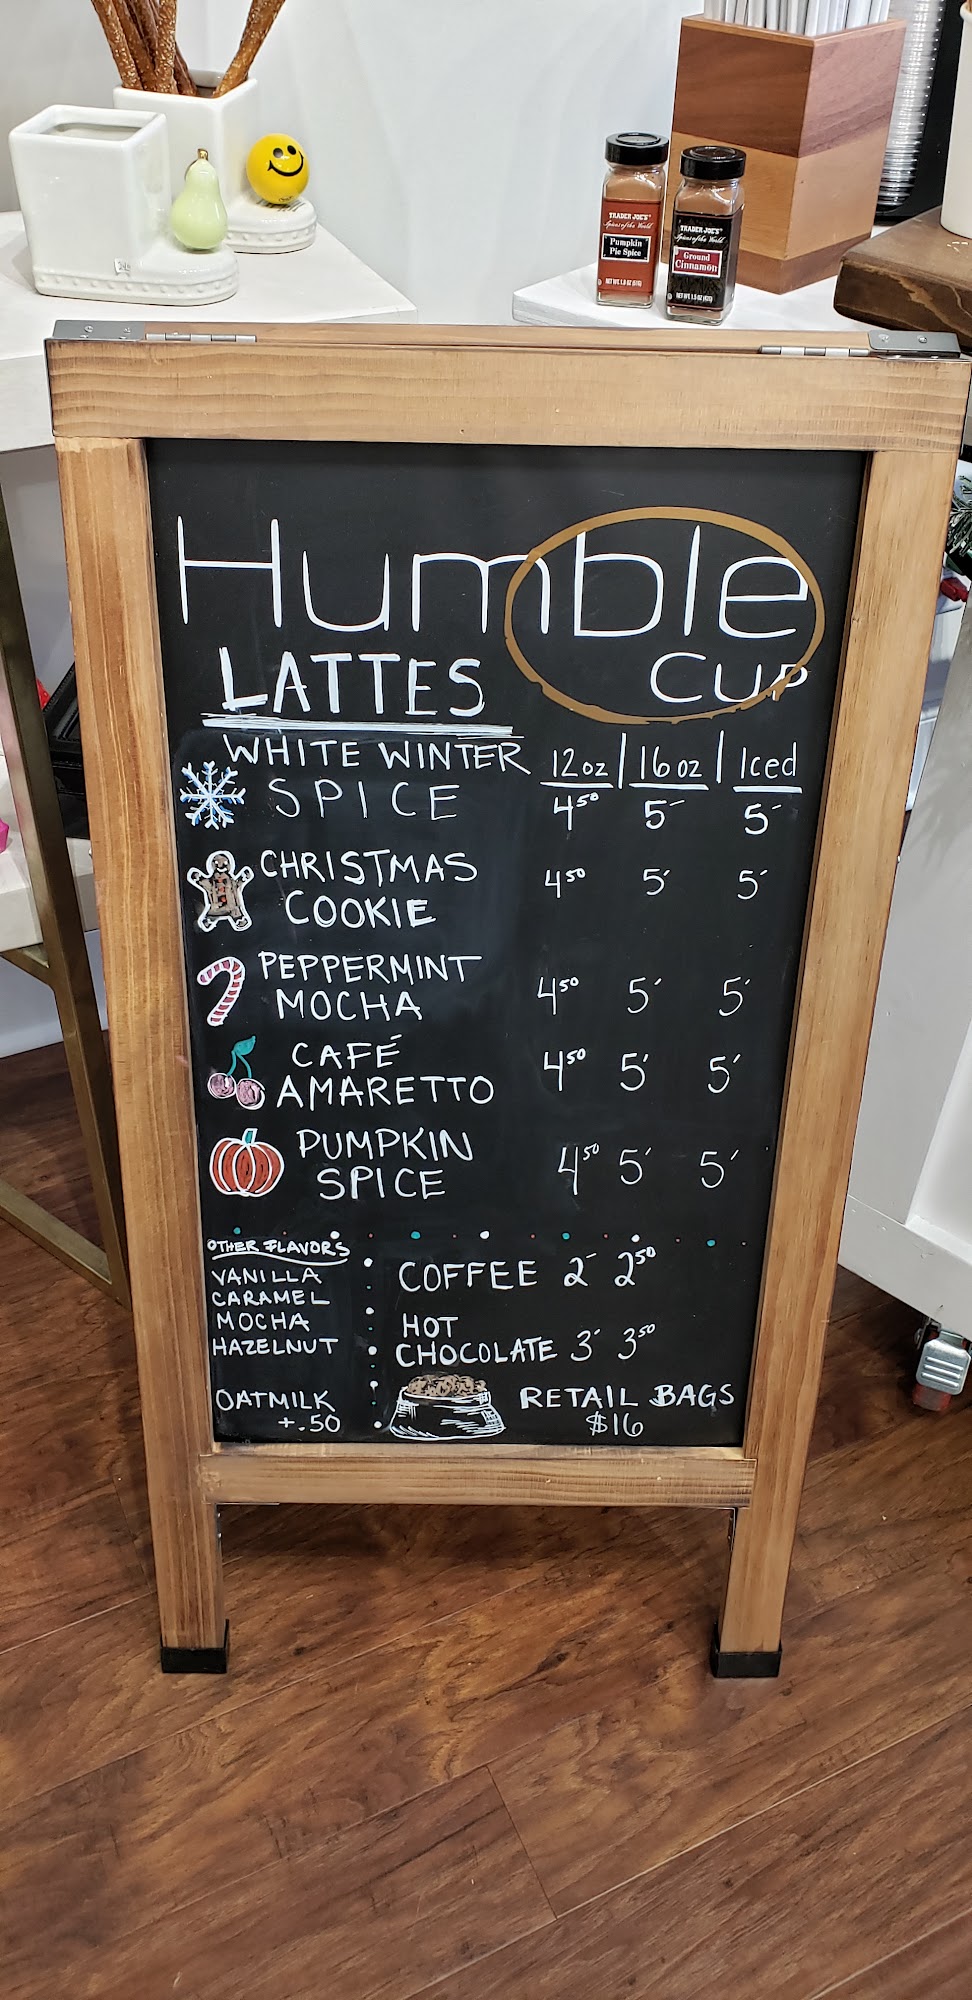 TRADER JOE'S
Spices of the World
Pumpkin
Pie Spice
NET WT. 1.8 OZ (51g)
TRADER JOE'S
Spices of the World
Ground
Cinnamon
Humble
CUP
LATTES
12oz | 16oz | Iced
WHITE WINTER
SPICE 4⁵⁰ 5⁻ 5⁻
CHRISTMAS
COOKIE 4⁵⁰ 5⁻ 5⁻
PEPPERMINT
MOCHA 4⁵⁰ 5⁻ 5⁻
CAFÉ
AMARETTO 4⁵⁰ 5⁻ 5⁻
PUMPKIN
SPICE 4⁵⁰ 5⁻ 5⁻
OTHER FLAVORS
VANILLA
CARAMEL
MOCHA
HAZELNUT
OATMILK
+.50
COFFEE 2⁻ 2⁵⁰
HOT
CHOCOLATE 3⁻ 3⁵⁰
RETAIL BAGS
$16